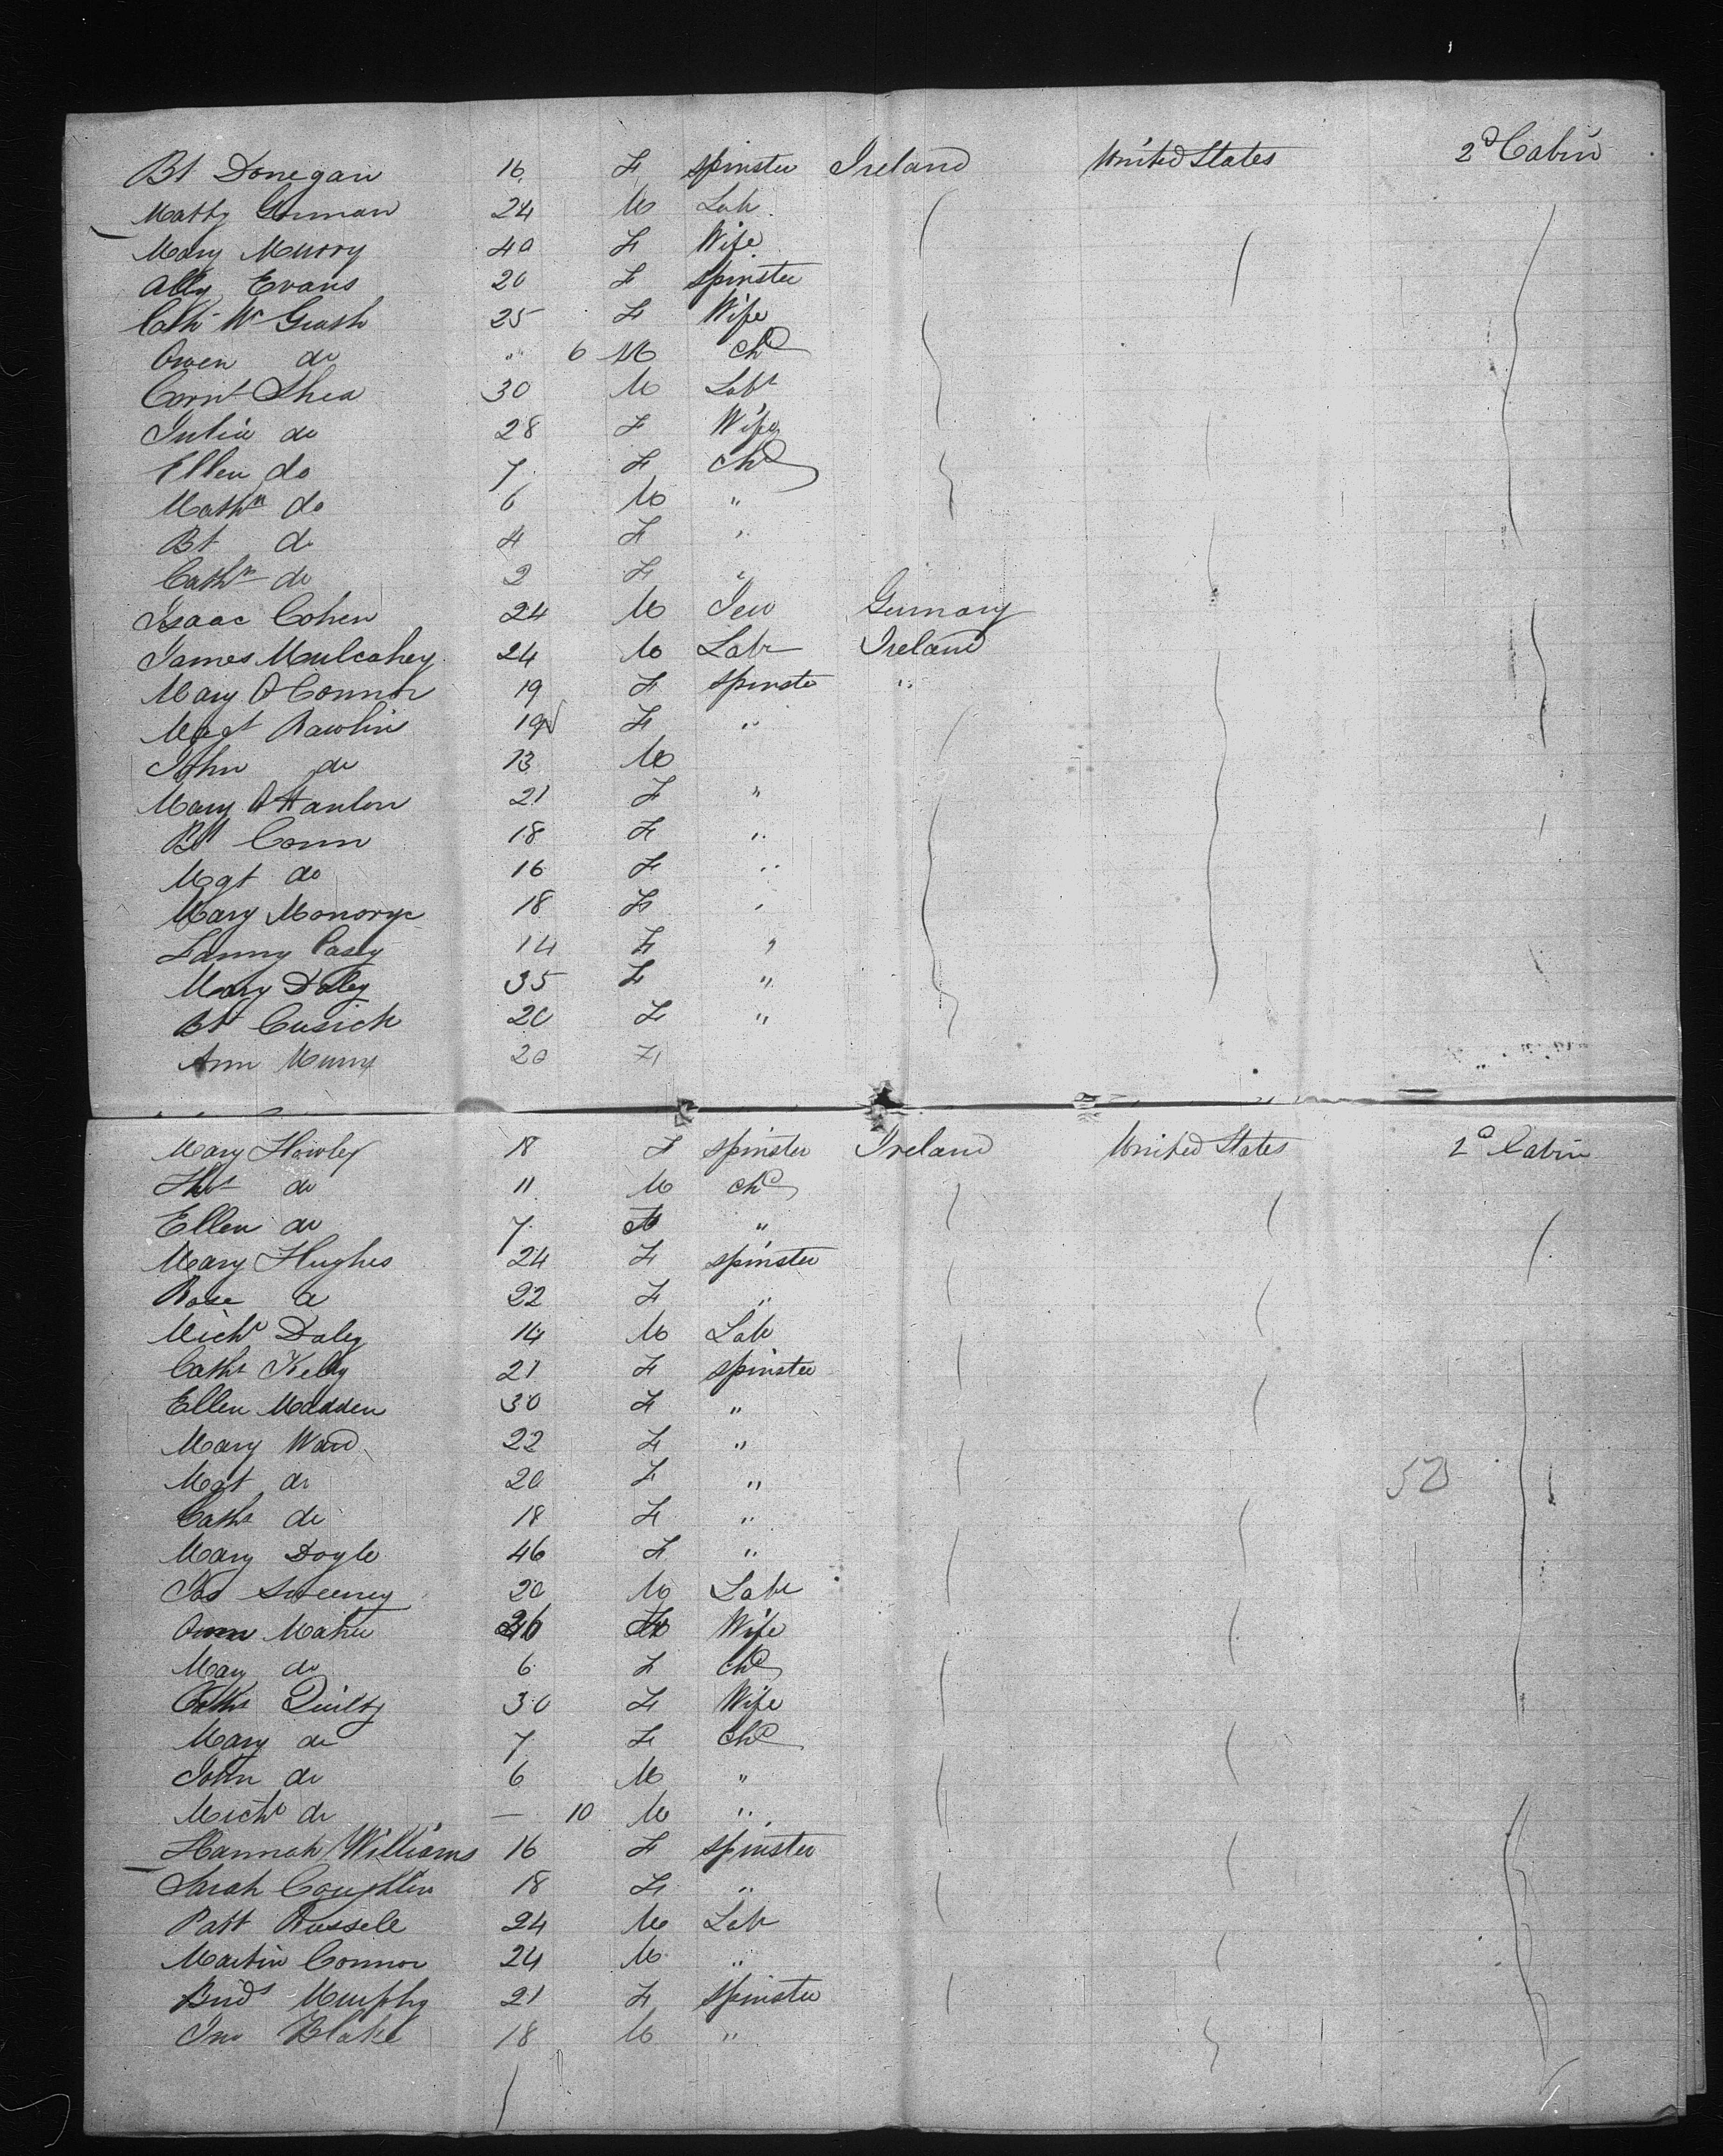 Bt Donegan 16 F spinster Ireland United States 2d Cabin
Matty Gorman 24 M Lab
Mary Murry 40 F Wife
Ally Evans 20 F spinster
Cath Mc Grath 25 F Wife
Owen do " 6 M chd
Cornl Shea 30 M Labr
Julia do 28 F Wife
Ellen do 7 F chd
Mathw do 6 M "
Bt do 4 F "
Cathn do 2 F "
Isaac Cohen 24 M Jew Germany
James Mulcahey 24 M Labr Ireland
Mary O Connor 19 F spinster "
Magt Rawlin 19 F "
John do 13 M
Mary O Hanlon 21 F "
Bt Conn 18 F "
Mgt do 16 F "
Mary 18 F "
Fanny Casey 14 F "
Mary Daley 35 F "
Bt Cusick 20 F "
Ann Murry 20 F
Mary Howley 18 F spinster Ireland United States 2d Cabin
do 11 M chd
Ellen do 7 F "
Mary Hughes 24 F spinster
Rose do 22 F "
Michl Daley 14 M Lab
Cathe Kelly 21 F spinster
Ellen Madden 30 F "
Mary Ward 22 F "
Mgt do 20 F " 50
Cathe do 18 F "
Mary Doyle 46 F "
Jas Sweeney 20 M Labr
Maher 26 F Wife
Mary do 6 F chd
Cathe Quilty 30 F Wife
Mary do 7 F chd
John do 6 M "
Michl do — 10 M "
Hannah Williams 16 F spinster
Sarah Coughlin 18 F "
Patt Russell 24 M Lab
Martin Connor 24 M "
Bridt Murphy 21 F spinster
Jno Blake 18 M "